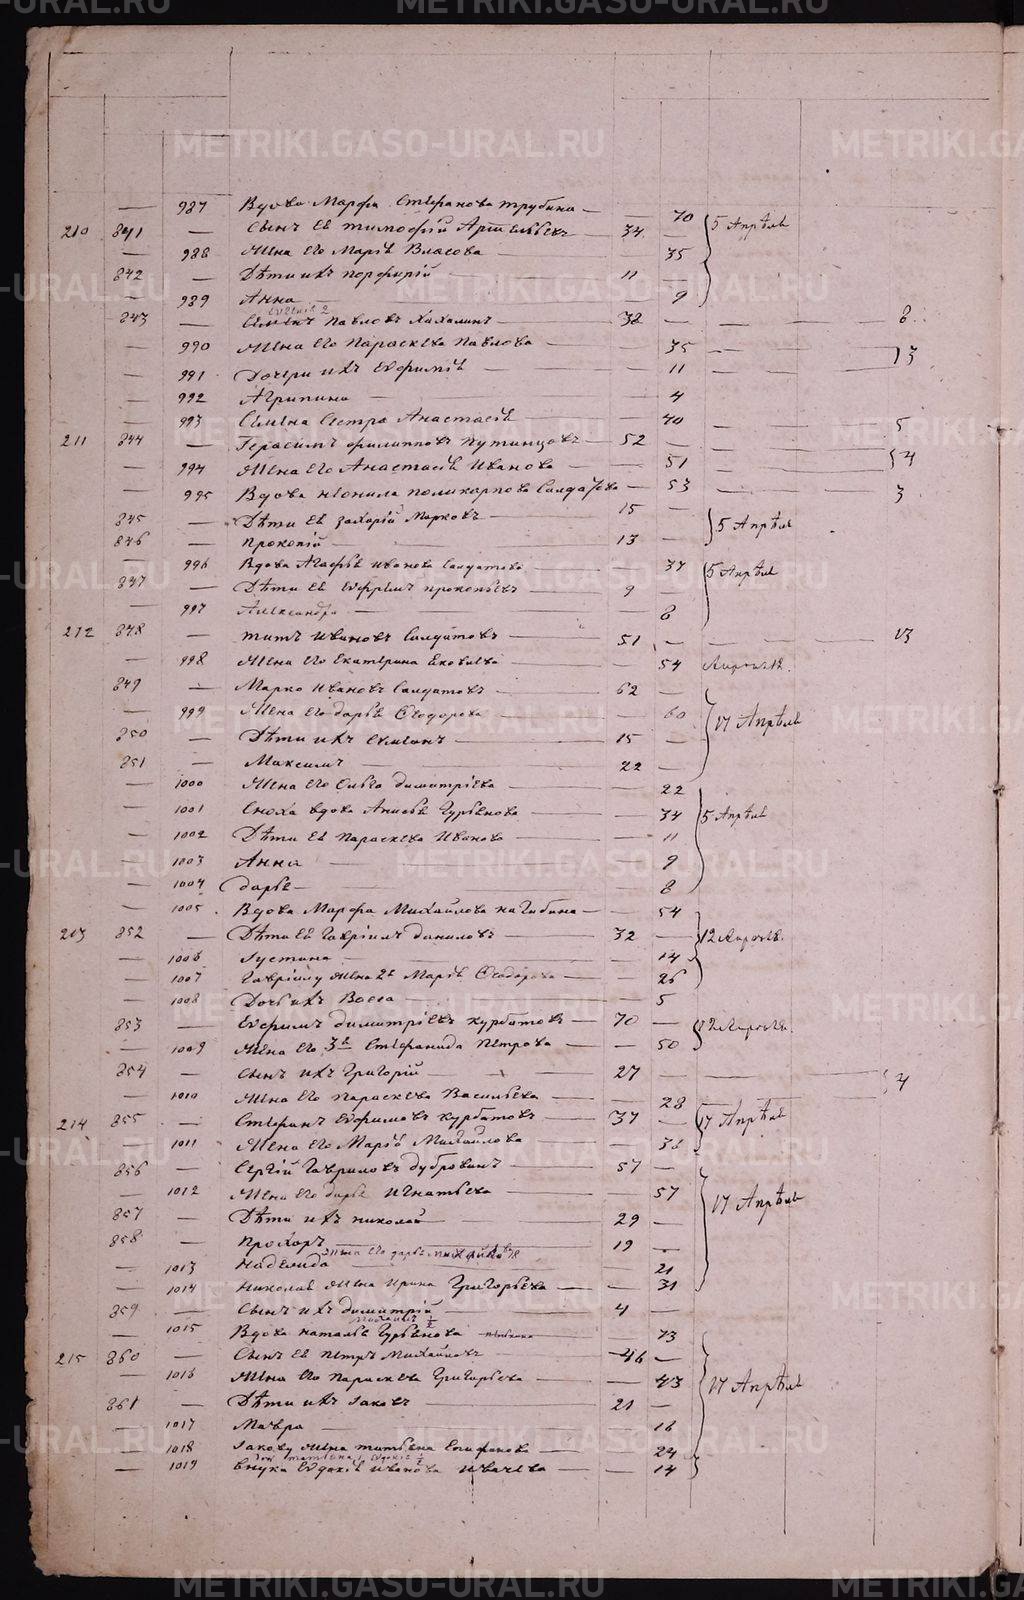 987 Вдова Марфа Стефанова Трубина 70
210 841 Сынъ ея Тимофей 34 5 Апрѣля
988 Жена его Марія Власова 35
842 Дѣти ихъ Порфирій 11
989 Анна 9
843 Семенъ Павловъ 38 8
990 Жена его Параскева Павлова 35 13
991 Дочери ихъ Евфимія 11
992 Агрипина 4
993 Семена сестра Анастасія 40 5
211 844 Герасимъ Филипповъ Путинцовъ 52
994 Жена его Анастасія Иванова 51 4
995 Вдова Неонила Поликарпова Салдатова 53 3
845 Дѣти ея Захарій Марковъ 15 5 Апрѣля
846 Прокопій 13
996 Вдова Агафья Иванова Салдатова 37 5 Апрѣля
847 Дѣти ея Ефремъ Прокопьевъ 9
997 Александра 8
212 848 Титъ Ивановъ Салдатовъ 51 13
998 Жена его Екатерина Яковлева 54
849 Марко Ивановъ Салдатовъ 62
999 Жена его Дарья Феодорова 60 17 Апрѣля
850 Дѣти ихъ Симеонъ 15
851 Максимъ 22
1000 Жена его Ольга Димитріева 22
1001 Сноха вдова Анисья Гурьянова 34 5 Апрѣля
1002 Дѣти ея Параскева Иванова 11
1003 Анна 9
1004 Дарья 8
1005 Вдова Марфа Михайлова Нагибина 54
213 852 Дѣти ея Гавріилъ Даниловъ 32 12
1006 Густина 14
1007 Гавріилу жена 2я Марія Феодорова 26
1008 Дочь ихъ Васса 5
853 Евфимъ Димитріевъ Курбатовъ 70 12
1009 Жена его 3я Стефанида Петрова 50
854 Сынъ ихъ Григорій 27 4
1010 Жена его Параскева Васильева 28
214 855 Стефанъ Евфимовъ Курбатовъ 37 17 Апрѣля
1011 Жена его Марія Михайлова 36
856 Сергій Гавриловъ Дубровинъ 57
1012 Жена его Дарья Игнатьева 57 17 Апрѣля
857 Дѣти ихъ Николай 29
858 Прохоръ 19
жена его Дарья
1013 Надежда 21
1014 Николая жена Ирина Григорьева 31
859 Сынъ ихъ Димитрій 4
1015 Вдова Наталья Гурьянова 73
215 860 Сынъ ея Петръ Михайловъ 46
1016 Жена его Параскева Григорьева 43 17 Апрѣля
861 Дѣти ихъ Іаковъ 21
1017 Мавра 16
1018 Іакову жена Татьяна Епифанова 24
1019 Внука Евдокія Иванова Ивачева 14
METRIKI.GASO-URAL.RU